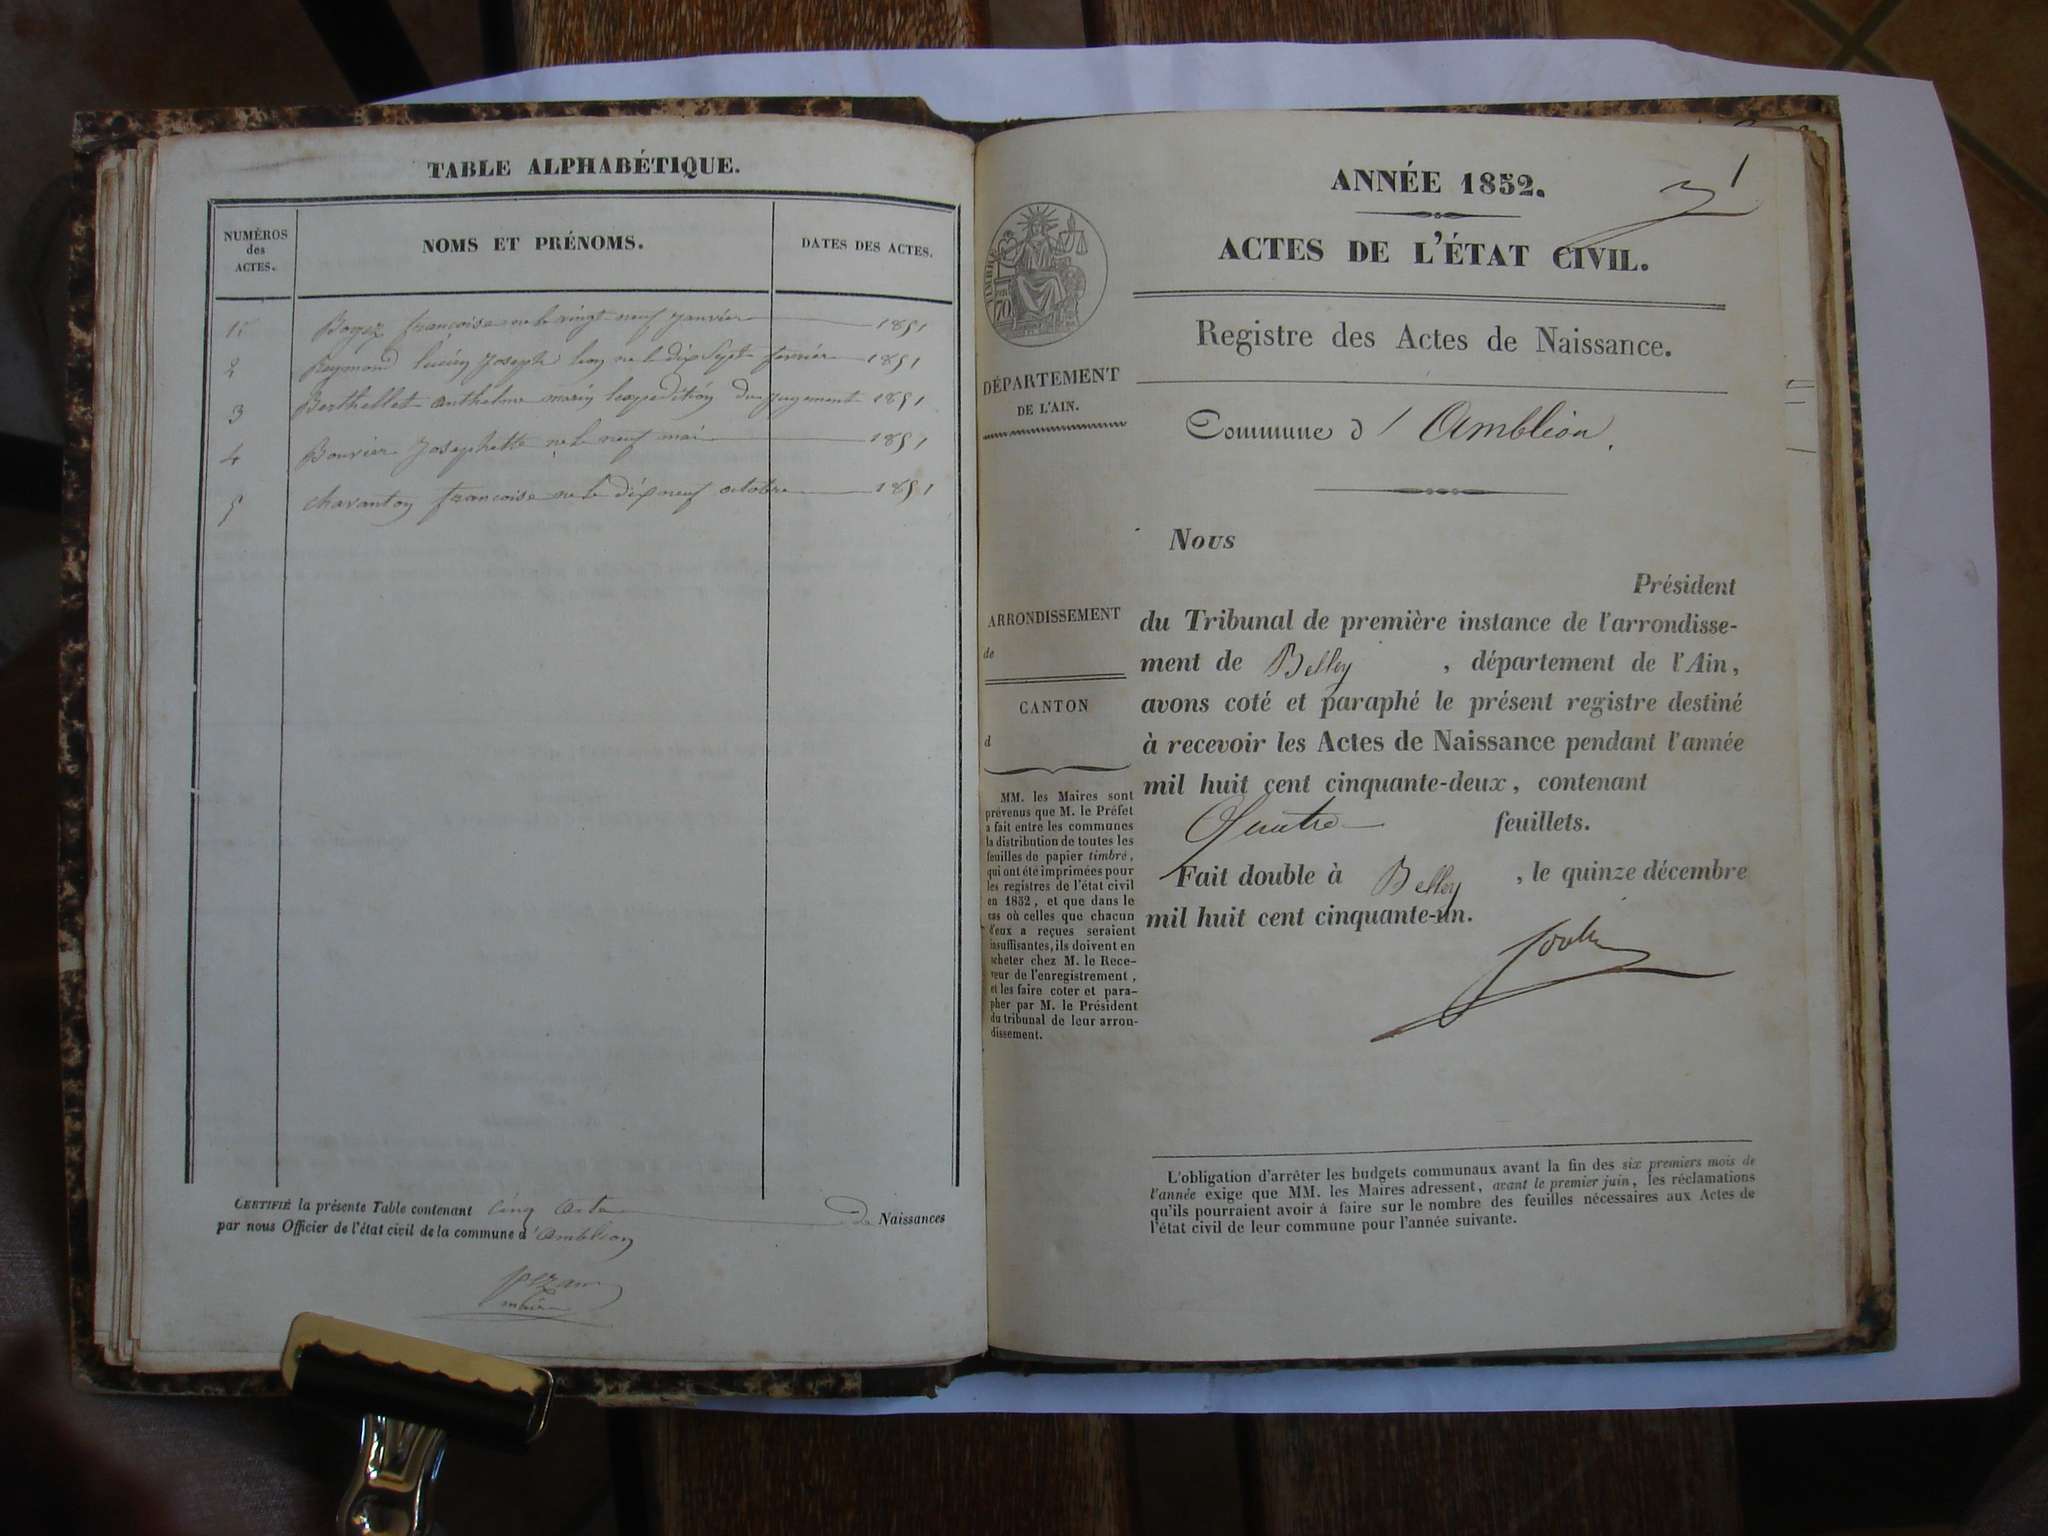 TABLE ALPHABÉTIQUE.
NUMÉROS
des
ACTES.
NOMS ET PRÉNOMS.
DATES DES ACTES.
1
françoise ne le vingt neuf janvier 1851
2 Reymond lucien Joseph leon ne le dix Sept fevrier 1851
3 Berthellet anthelme marin lexpedition dun jugement 1851
4 Bouvier Josephette ne le neuf mai 1851
5 Chavanton françoise ne le dix neuf octobre 1851
CERTIFIÉ la présente Table contenant cinq acte de Naissances
par nous Officier de l'état civil de la commune d'Ambléon
maire
1
ANNÉE 1852.
ACTES DE L'ÉTAT CIVIL.
Registre des Actes de Naissance.
TIMBRE
70
DÉPARTEMENT
DE L'AIN.
Commune d'Ambléon.
Nous
Président
du Tribunal de première instance de l'arrondisse-
ment de Belley, département de l'Ain,
avons coté et paraphé le présent registre destiné
à recevoir les Actes de Naissance pendant l'année
mil huit cent cinquante-deux, contenant
Quatre feuillets.
Fait double à Belley, le quinze décembre
mil huit cent cinquante-un.
ARRONDISSEMENT
de
CANTON
d
MM. les Maires sont
prévenus que M. le Préfet
a fait entre les communes
la distribution de toutes les
feuilles de papier timbré,
qui ont été imprimées pour
les registres de l'état civil
en 1852, et que dans le
cas où celles que chacun
d'eux a reçues seraient
insuffisantes, ils doivent en
acheter chez M. le Rece-
veur de l'enregistrement,
et les faire coter et para-
pher par M. le Président
du tribunal de leur arron-
dissement.
L'obligation d'arrêter les budgets communaux avant la fin des six premiers mois de
l'année exige que MM. les Maires adressent, avant le premier juin, les réclamations
qu'ils pourraient avoir à faire sur le nombre des feuilles nécessaires aux Actes de
l'état civil de leur commune pour l'année suivante.